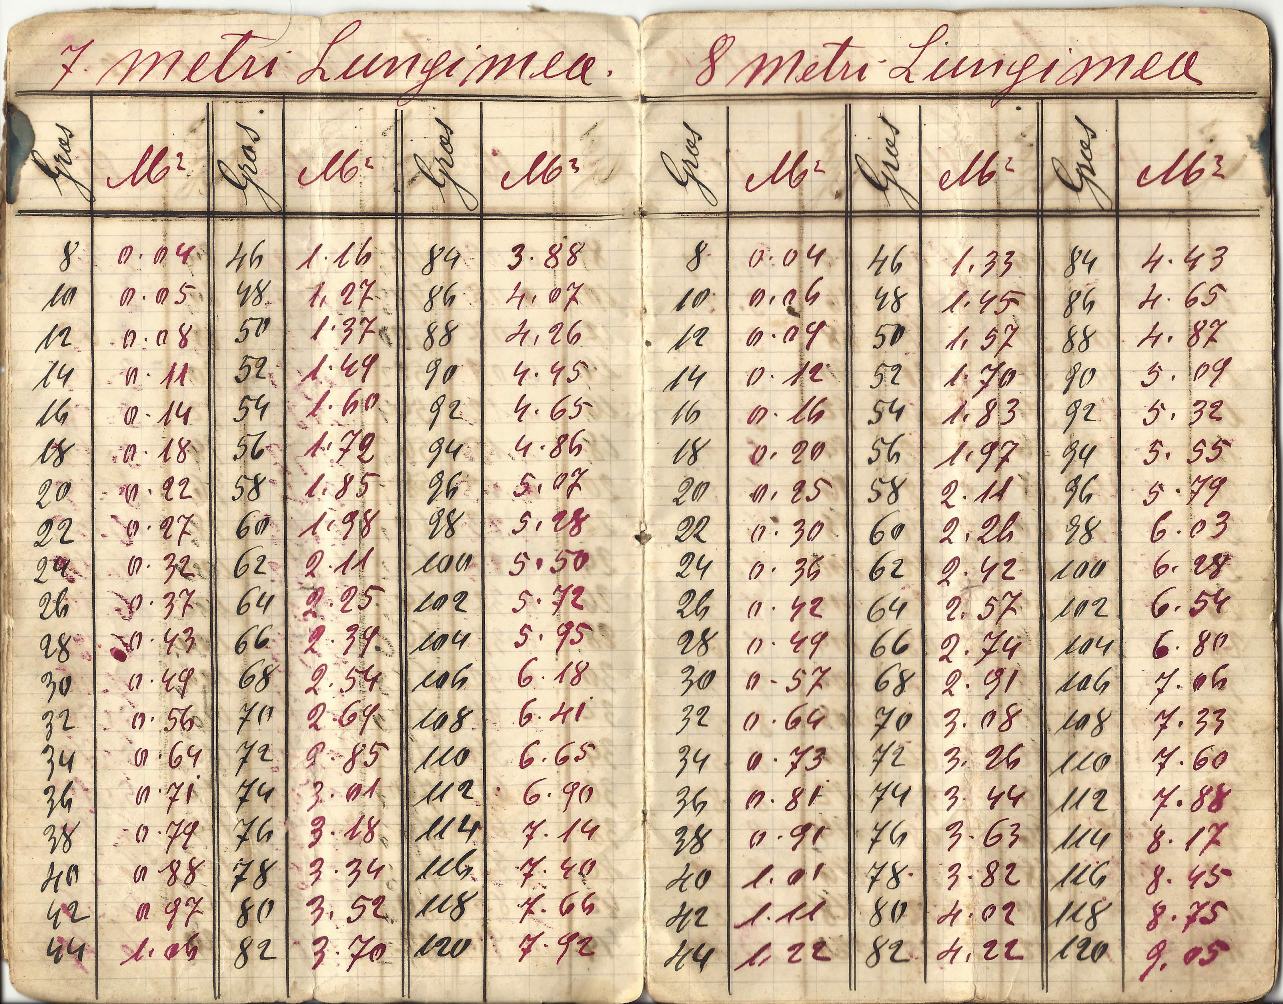 7 metri Lungimea.
Gros M² Gros M² Gros M³
8 0.04 46 1.16 84 3.88
10 0.05 48 1.27 86 4.07
12 0.08 50 1.37 88 4.26
14 0.11 52 1.49 90 4.45
16 0.14 54 1.60 92 4.65
18 0.18 56 1.72 94 4.86
20 0.22 58 1.85 96 5.07
22 0.27 60 1.98 98 5.28
24 0.32 62 2.11 100 5.50
26 0.37 64 2.25 102 5.72
28 0.43 66 2.39 104 5.95
30 0.49 68 2.54 106 6.18
32 0.56 70 2.69 108 6.41
34 0.64 72 2.85 110 6.65
36 0.71 74 3.01 112 6.90
38 0.79 76 3.18 114 7.14
40 0.88 78 3.34 116 7.40
42 0.97 80 3.52 118 7.66
44 1.06 82 3.70 120 7.92
8 metri Lungimea
Gros M² Gros M² Gros M³
8 0.04 46 1.33 84 4.43
10 0.06 48 1.45 86 4.65
12 0.09 50 1.57 88 4.87
14 0.12 52 1.70 90 5.09
16 0.16 54 1.83 92 5.32
18 0.20 56 1.97 94 5.55
20 0.25 58 2.11 96 5.79
22 0.30 60 2.26 98 6.03
24 0.36 62 2.42 100 6.28
26 0.42 64 2.57 102 6.54
28 0.49 66 2.74 104 6.80
30 0.57 68 2.91 106 7.06
32 0.64 70 3.08 108 7.33
34 0.73 72 3.26 110 7.60
36 0.81 74 3.44 112 7.88
38 0.91 76 3.63 114 8.17
40 1.01 78 3.82 116 8.45
42 1.11 80 4.02 118 8.75
44 1.22 82 4.22 120 9.05